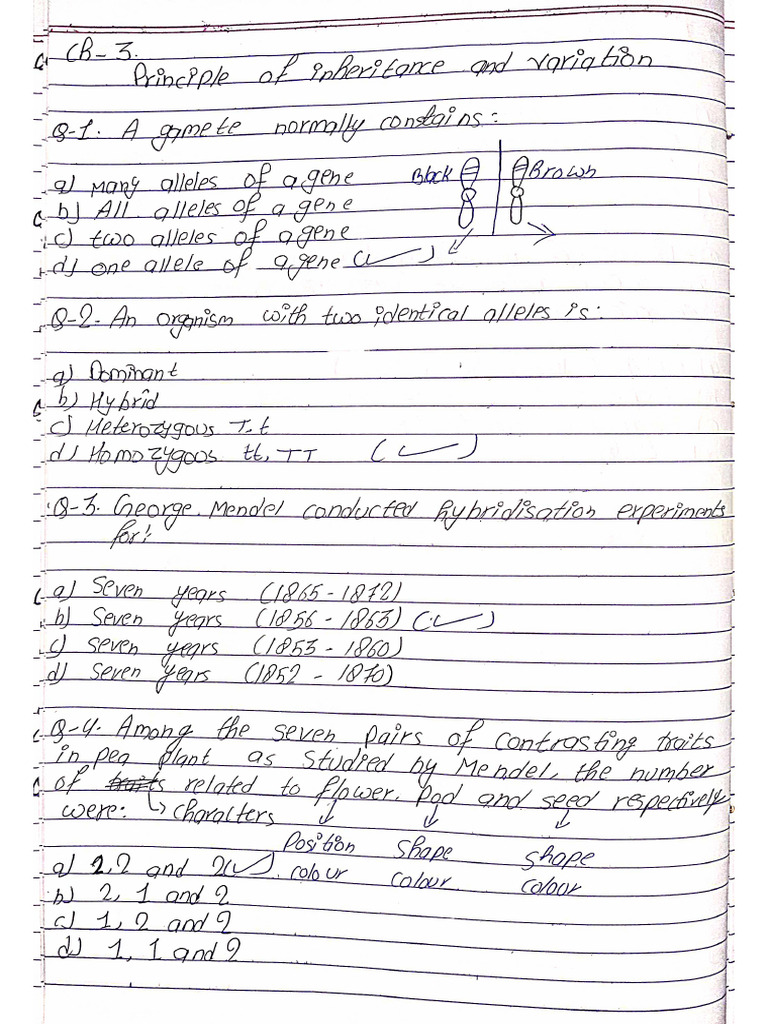 Ch-3.
Principle of inheritance and variation
Q-1. A gamete normally constains:
a) Many alleles of a gene Black Brown
b) All alleles of a gene
c) two alleles of a gene
d) one allele of a gene (✓)
Q-2. An organism with two identical alleles is:
a) Dominant
b) Hybrid
c) Heterozygous T.t
d) Homozygous tt, TT (✓)
Q-3. George. Mendel conducted hybridisation experiments
for:
a) Seven years (1865-1872)
b) Seven years (1856-1863) (✓)
c) seven years (1853-1860)
d) Seven years (1852-1870)
Q-4. Among the seven pairs of contrasting traits
in pea plant as studied by Mendel, the number
of traits related to flower. Pod and seed respectively
were: ↳ Charalters ↓ ↓ ↓
Position Shape shape
a) 2,2 and 2(✓). colour colour colour
b) 2, 1 and 2
c) 1, 2 and 2
d) 1, 1 and 2